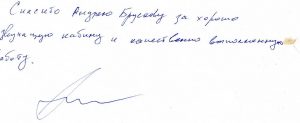 Спасибо Андрею Брускову за хорошо
звучащую кабину и качественно выполненную
работу.